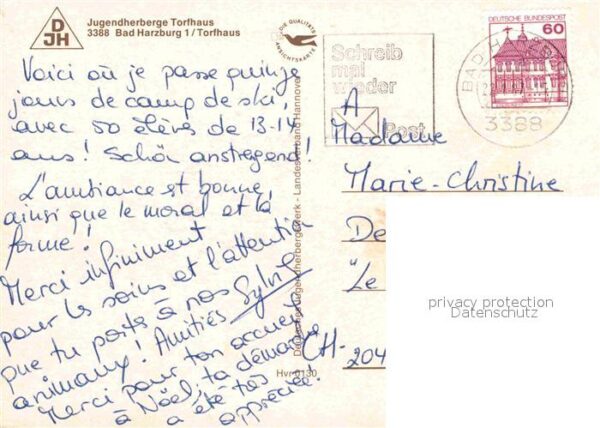 DJH
Jugendherberge Torfhaus
3388 Bad Harzburg 1 / Torfhaus
DIE QUALITÄTS ANSICHTSKARTE
Voici où je passe quinze
jours de camp de ski,
avec 50 élève de 13-14
ans! Schön anstregend!
L'ambiance est bonne,
ainsi que le moral et la
forme!
Merci infiniment
pour les soins et l'attention
que tu porte à nos
animaux! Amitiés Sylvie
Merci pour ton accueil
à Nöel, ta démarche
a été très
appréciée!
Deutsches Jugendherbergswerk - Landesverband Hannover
Hvr 0130
Schreib
mal
wieder
Post
BAD HARZBURG
3388
DEUTSCHE BUNDESPOST
60
A
Madame
Marie-Christine
De
"Le
CH-204
privacy protection
Datenschutz